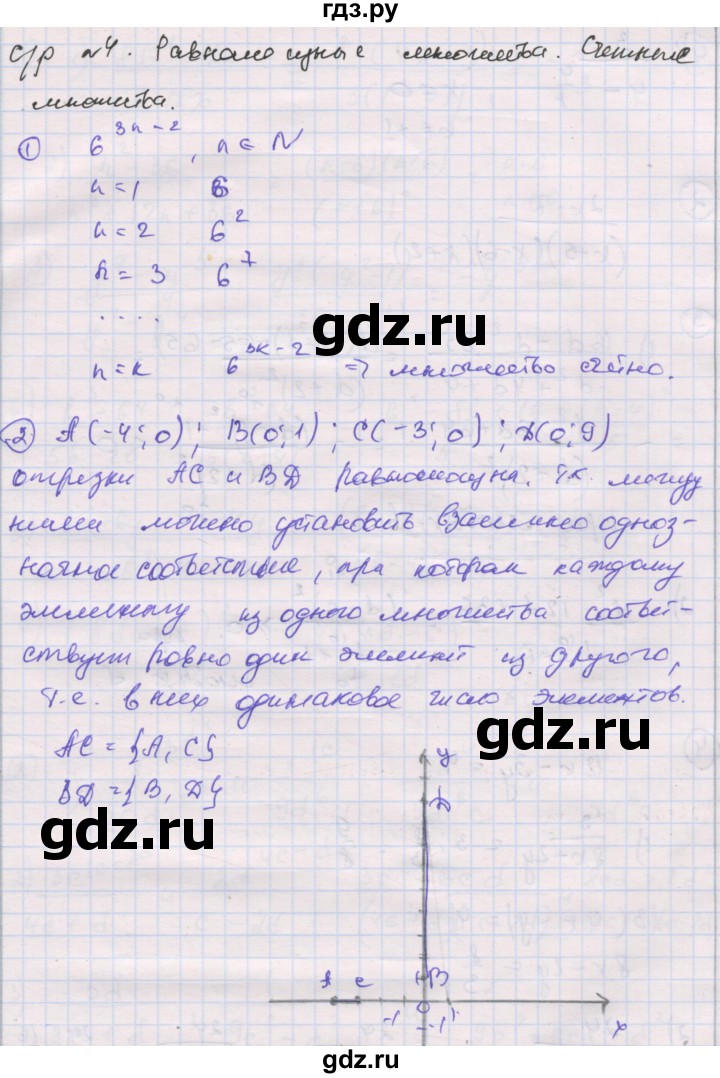 гдз.ру
С/р №4. Равномощные множества. Счетные
множества.
① 6^{3n-2}, n ∈ N
n = 1 6
n = 2 6^2
n = 3 6^7
....
gdz.ru
n = k 6^{3k-2} => множество счётно.
② A(-4; 0); B(0; 1); C(-3; 0); D(0; 9)
отрезки AC и BD равномощны. т.к. между
ними можно установить взаимно одноз-
начное соответствие, при котором каждому
элементу из одного множества соответ-
ствует ровно один элемент из другого,
т.е. в них одинаковое число элементов.
AC = {A, C}
gdz.ru
y
BD = {B, D}
D
gdz.ru
A C B
-1 0 1 x
-1
gdz.ru